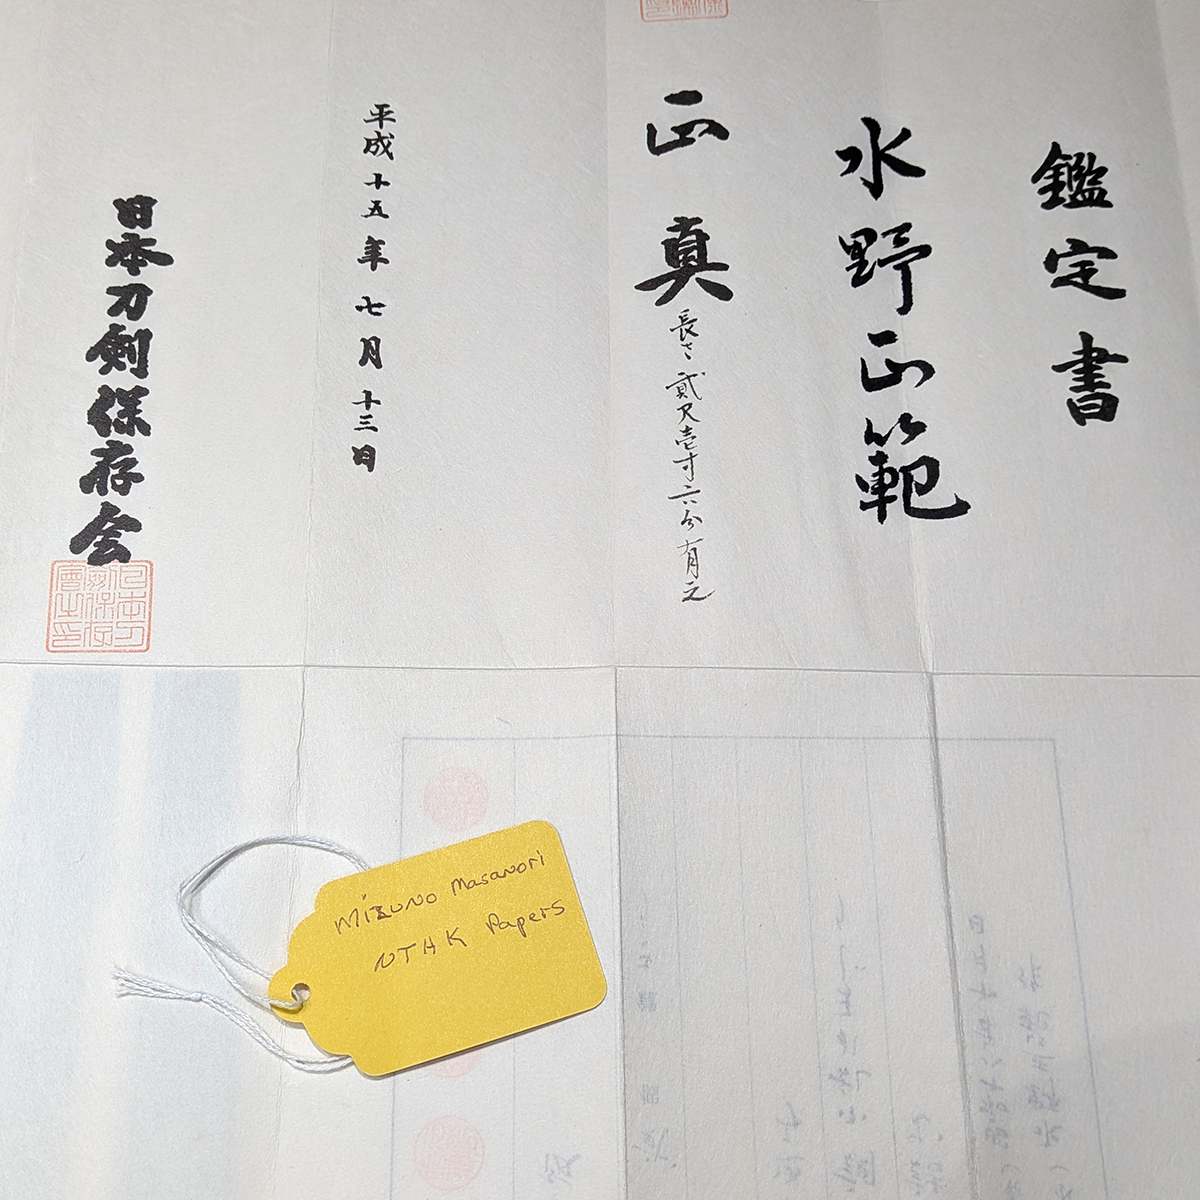 鑑定書
水野正範
正真
長さ 貳尺壱寸六分有之
平成十五年七月十三日
日本刀剣保存会
Mizuno Masanori
NTHK Papers